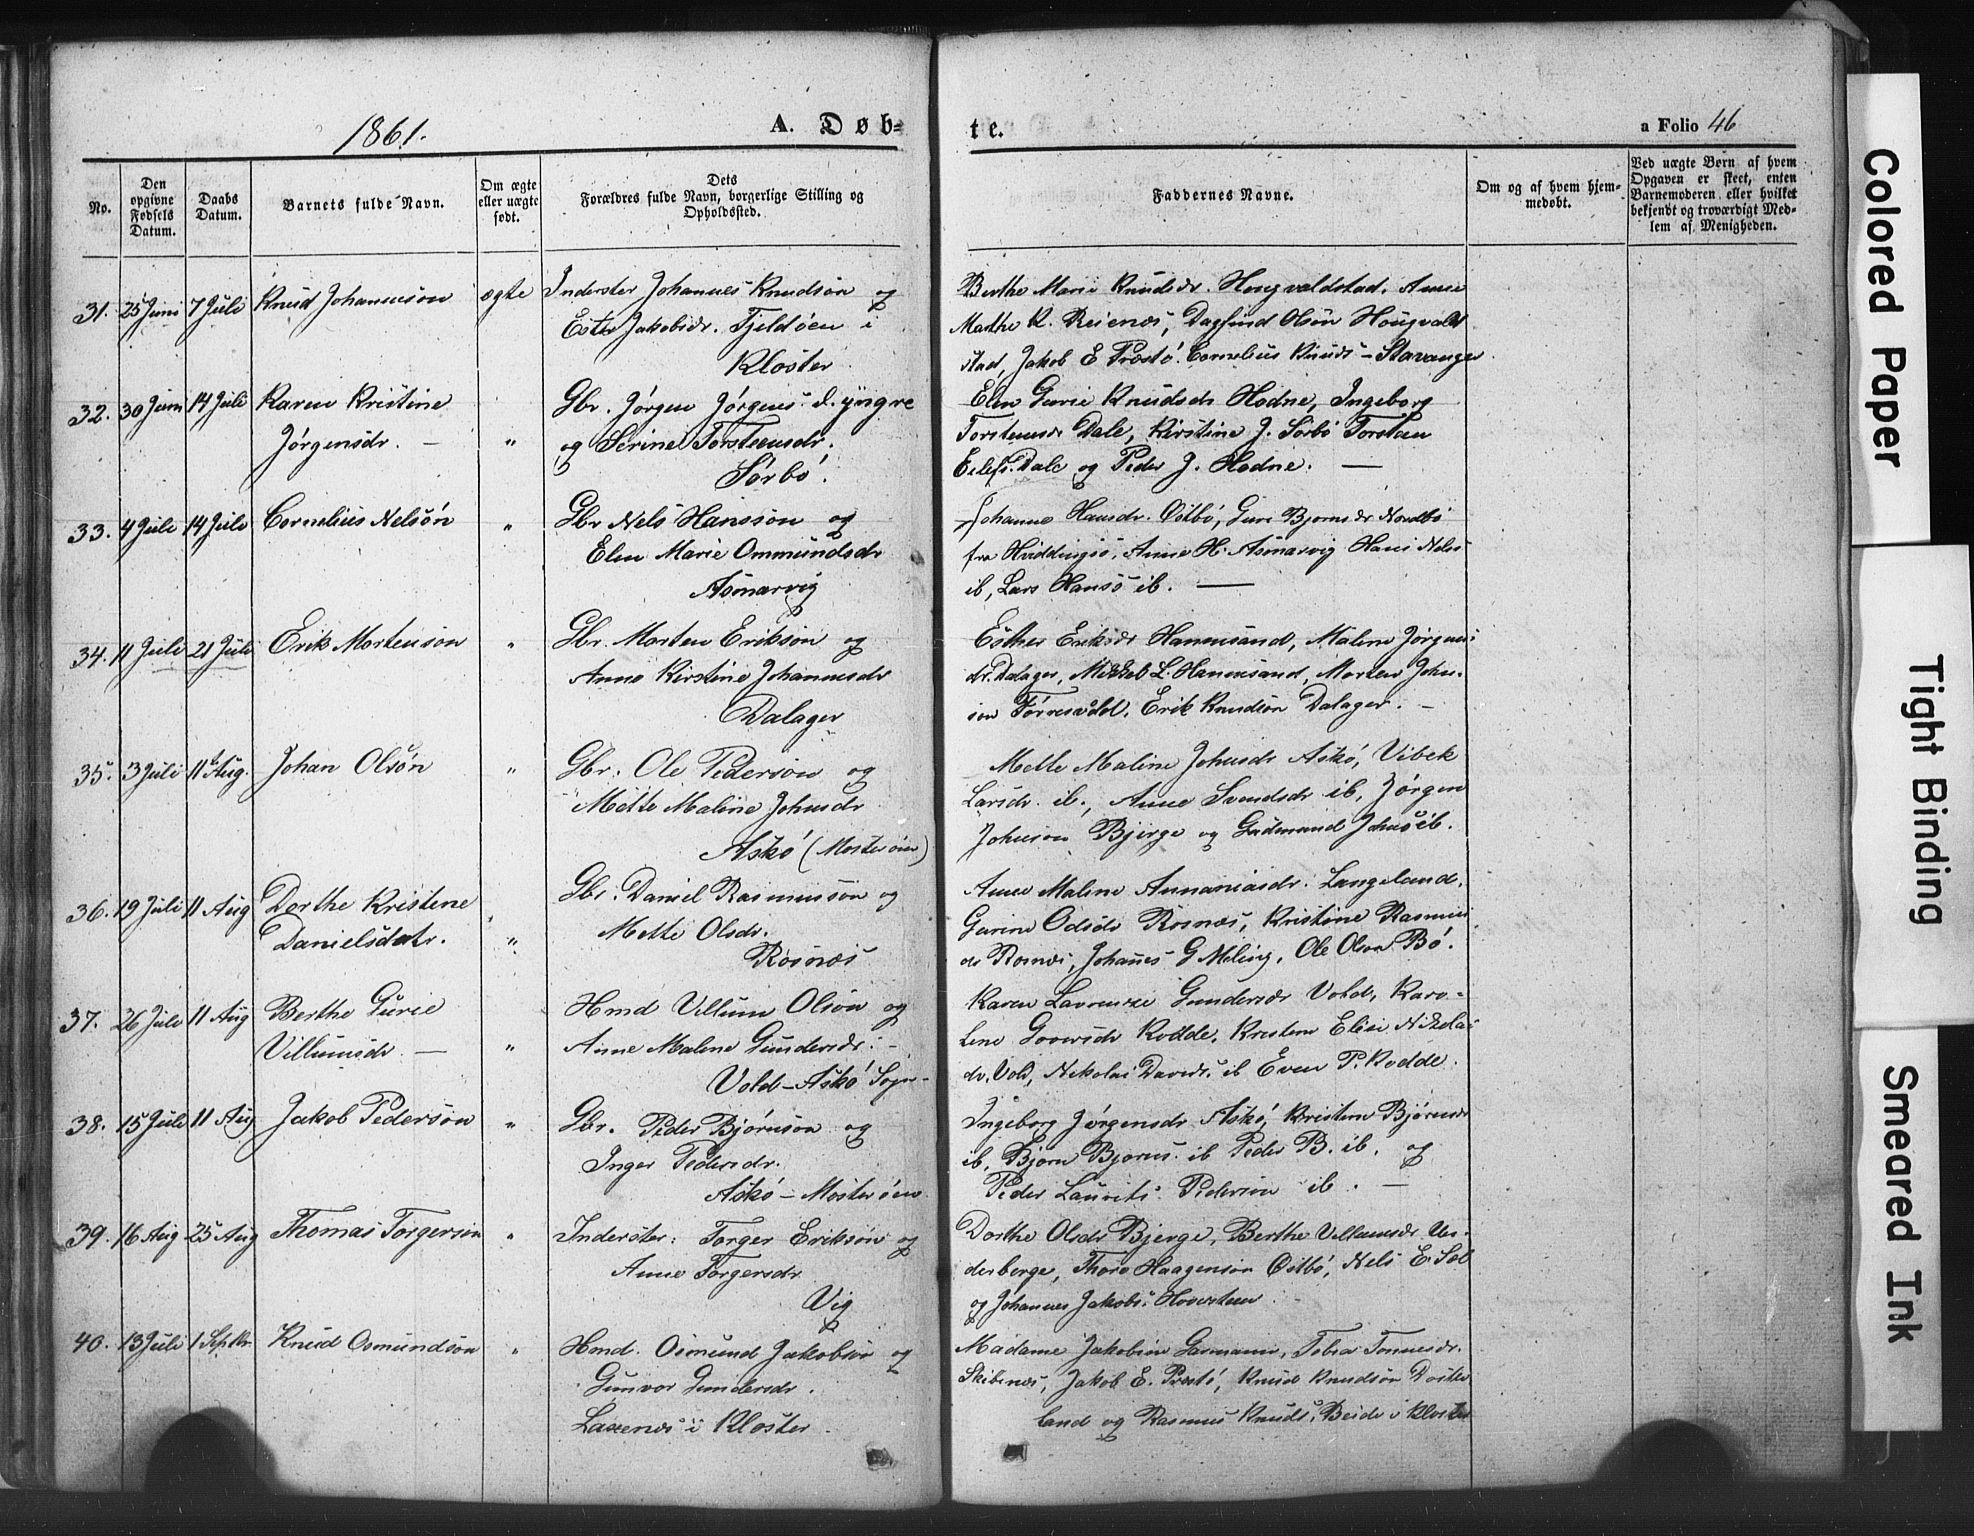 1861.
A. Døb-
te.
a Folio 46
No.
Den opgivne Fødsels Datum.
Daabs Datum.
Barnets fulde Navn.
Om ægte eller uægte født.
Dets Forældres fulde Navn, borgerlige Stilling og Opholdssted.
Faddernes Navne.
Om og af hvem hjemmedøbt.
Ved uægte Børn af hvem
Opgaven er skeet, enten
Barnemoderen eller hvilket
bekjendt og troværdigt Med-
lem af Menigheden.
31. 25 Juni 7 Juli Knud Johannesøn ægte Inderster Johannes Knudsøn og
Ester Jakobsdr. Fjeldøen i
Kloster
Berthe Marie Knudsdr. Hougvaldstad, Anne
Marthe K. Reienæs, Dagfind Olsøn Hougvald
stad, Jakob E Præstø. Cornelius Knuds - Stavanger
32. 30 Juni 14 Juli Karen Kristine
Jørgensdr. — "
Gbr. Jørgen Jørgens. d. yngre
og Serine Torsteensdr.
Sørbø.
Elen Gurie Knudsdr Hodne, Ingeborg
Torsteensdr Dale, Kirstine J. Sørbø Torsteen
Eilefs. Dale og Peder J. Hodne. —
33. 4 Juli 14 Juli Cornelius Nelsøn "
Gbr Nels Hanssøn og
Elen Marie Ommundsdr
Asmarvig
Johanne Hansdr. Østbø, Guri Bjornsdr Nordbø
fra Hviddingsø, Anne H. Asmarvig Hans Nels
ib, Lars Hanss ib. —
34. 11 Juli 21 Juli Erik Mortensøn "
Gbr. Morten Eriksøn og
Anne Kirstine Johannesdr
Dalager
Esther Eriksdr Hanesand, Malene Jørgens
dr. Dalager, Mikkel L. Hanesand, Morten John-
søn Torresvold, Erik Knudsøn Dalager. —
35. 3 Juli 11 Aug. Johan Olsøn "
Gbr. Ole Pedersøn og
Mette Maline Johnsdr
Askø (Mosterøen)
Mette Maline Johnsdr Askø, Vibek
Larsdr. ib., Anne Svendsdr ib, Jørgen
Johnson Bjerge og Gudmund Johns ib.
36. 19 Juli 11 Aug Dorthe Kristine
Danielsdatr. "
Gbr. Daniel Rasmussøn og
Mette Olsdr.
Rosnæs
Anne Malene Annaniasdr. Langeland,
Gurine Odsdr Rosnæs, Kristine Rasmus
dr Rosnæs, Johannes G Meling, Ole Olsøn Bø.
37. 26 Juli 11 Aug Berthe Gurie
Villumsdr. — "
Hmd Villum Olsøn og
Anne Malene Gundersdr. -
Vold - Askø Sogn -
Karen Lavrentze Gundersdr Vold, Karo-
line Goversdr Rodde, Kristen Elise Nikolai
dr. Vold, Nikolai Davids. ib Even P. Rodde.
38. 15 Juli 11 Aug Jakob Pedersøn "
Gbr. Peder Bjørnsøn og
Inger Pedersdr.
Askø - Mosterøen
Ingeborg Jørgensdr Askø, Kristen Bjørnsdr
ib, Bjørn Bjørns. ib Peder B. ib. og
Peder Laurits Pedersøn ib. —
39. 16 Aug 25 Aug Thomas Torgersøn "
Inderster: Torger Eriksøn og
Anne Torgersdr
Vig
Dorthe Olsdr Bjerge, Berthe Villumsdr Un-
derberge, Thore Haagensøn Østbø, Nels E. Sel
og Johannes Jakobs. Hoversteen
40. 13 Juli 1 Septbr. Knud Osmundsøn "
Hmd. Osmund Jakobsøn og
Gunvor Gundersdr.
Laxenæs i Kloster.
Madame Jakobine Garmann, Tobia Tonnesdr.
Skibenæs, Jakob E. Præstø, Knud Knudsøn Døstle
land og Rasmus Knuds, Beide i Kloster
Colored Paper
Tight Binding
Smeared Ink